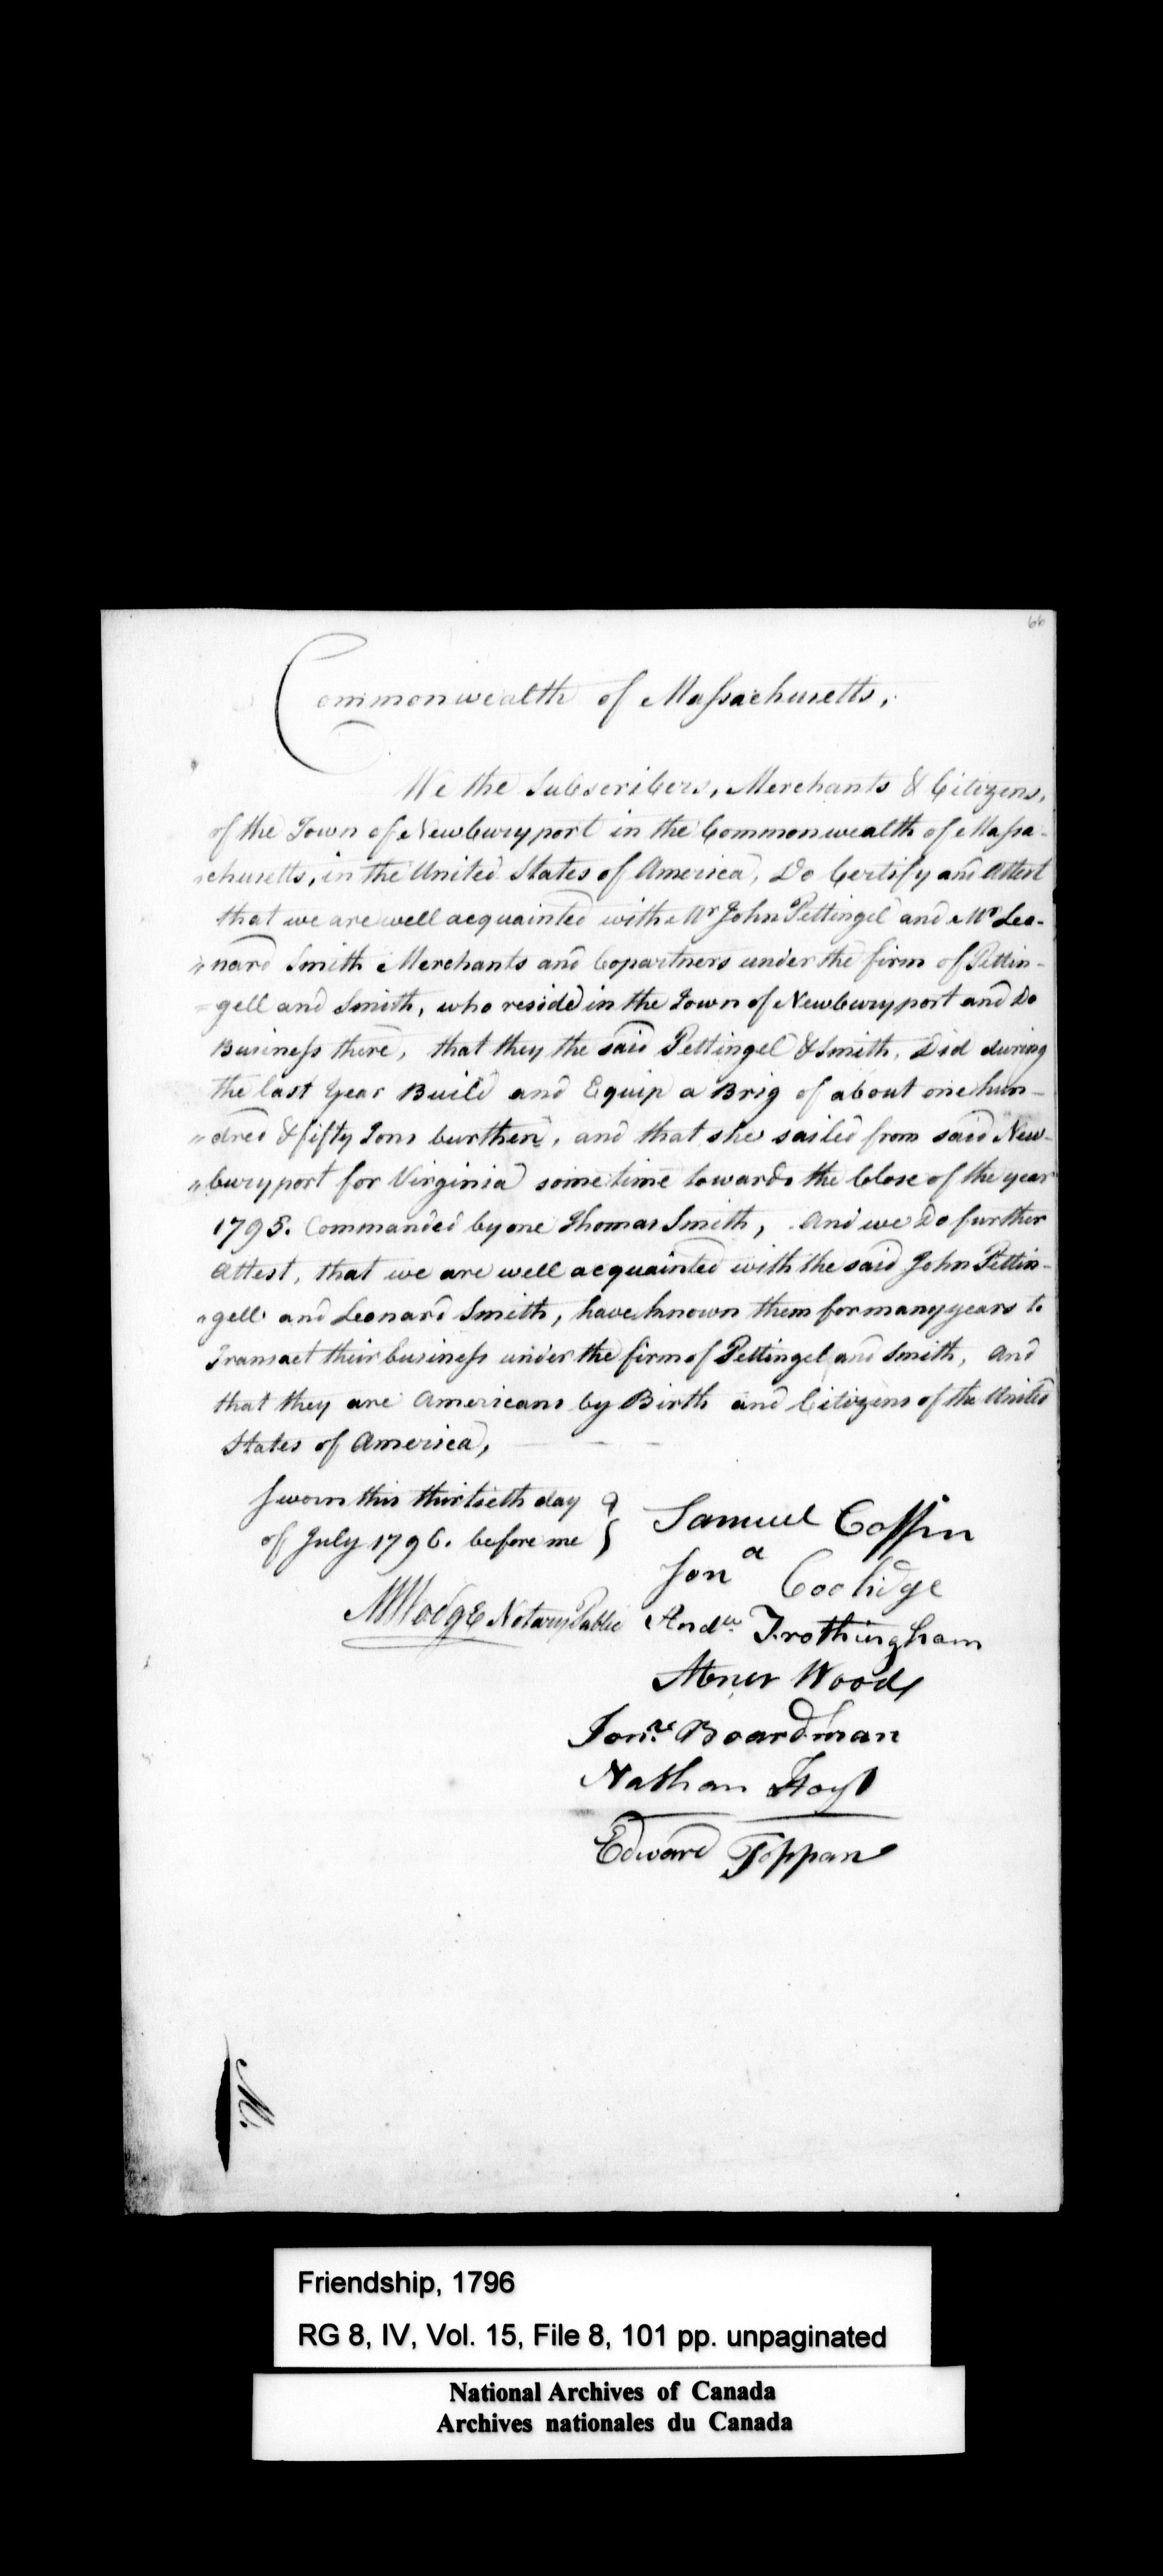 66
Commonwealth of Massachusetts,
We the Subscribers, Merchants & Citizens,
of the Town of Newburyport in the Commonwealth of Massa-
"chusetts, in the United States of America, Do Certify and Attest
that we are well acquainted with Mr John Pettingel and Mr Leo-
"nard Smith Merchants and Copartners under the firm of Pettin-
=gell and Smith, who reside in the Town of Newburyport and Do
Business there, that they the said Pettingel & Smith, Did during
the last Year Build and Equip a Brig of about one hun-
"dred & fifty Tons burthen, and that she sailed from said New-
"buryport for Virginia some time towards the Close of the year
1795. Commanded by one Thomas Smith, And we Do further
Attest, that we are well acquainted with the said John Pettin-
"gell and Leonard Smith, have known them for many years to
Transact their business under the firm of Pettingel and Smith, And
that they are Americans by Birth and Citizens of the United
States of America,
Sworn this thirtieth day
of July 1796. before me
Samuel Coffin
Jona Coolidge
MHodge Notary Public
Andw. Frothingham
Abner Wood
Jon. Boardman
Nathan Hoyt
Edward Toppan
M.
Friendship, 1796
RG 8, IV, Vol. 15, File 8, 101 pp. unpaginated
National Archives of Canada
Archives nationales du Canada